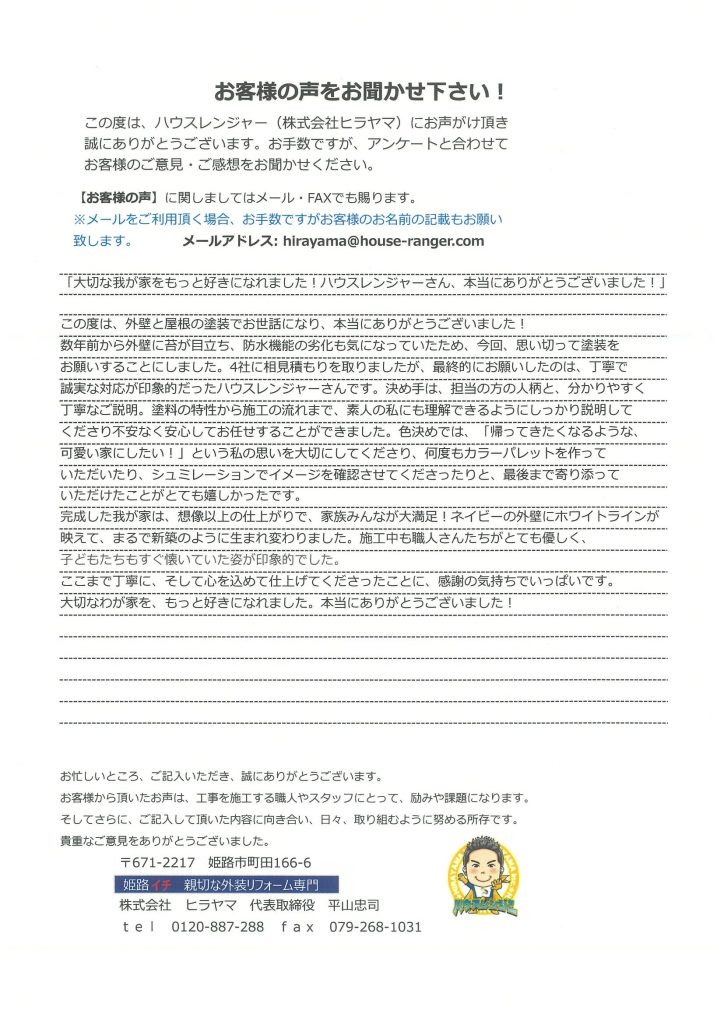 お客様の声をお聞かせ下さい！
この度は、ハウスレンジャー（株式会社ヒラヤマ）にお声がけ頂き
誠にありがとうございます。お手数ですが、アンケートと合わせて
お客様のご意見・ご感想をお聞かせください。
【お客様の声】に関しましてはメール・FAXでも賜ります。
※メールをご利用頂く場合、お手数ですがお客様のお名前の記載もお願い
致します。 メールアドレス: hirayama@house-ranger.com
「大切な我が家をもっと好きになれました！ハウスレンジャーさん、本当にありがとうございました！」
この度は、外壁と屋根の塗装でお世話になり、本当にありがとうございました！
数年前から外壁に苔が目立ち、防水機能の劣化も気になっていたため、今回、思い切って塗装を
お願いすることにしました。4社に相見積もりを取りましたが、最終的にお願いしたのは、丁寧で
誠実な対応が印象的だったハウスレンジャーさんです。決め手は、担当の方の人柄と、分かりやすく
丁寧なご説明。塗料の特性から施工の流れまで、素人の私にも理解できるようにしっかり説明して
くださり不安なく安心してお任せすることができました。色決めでは、「帰ってきたくなるような、
可愛い家にしたい！」という私の思いを大切にしてくださり、何度もカラーパレットを作って
いただいたり、シュミレーションでイメージを確認させてくださったりと、最後まで寄り添って
いただけたことがとても嬉しかったです。
完成した我が家は、想像以上の仕上がりで、家族みんなが大満足！ネイビーの外壁にホワイトラインが
映えて、まるで新築のように生まれ変わりました。施工中も職人さんたちがとても優しく、
子どもたちもすぐ懐いていた姿が印象的でした。
ここまで丁寧に、そして心を込めて仕上げてくださったことに、感謝の気持ちでいっぱいです。
大切なわが家を、もっと好きになれました。本当にありがとうございました！
お忙しいところ、ご記入いただき、誠にありがとうございます。
お客様から頂いたお声は、工事を施工する職人やスタッフにとって、励みや課題になります。
そしてさらに、ご記入して頂いた内容に向き合い、日々、取り組むように努める所存です。
貴重なご意見をありがとうございました。
〒671-2217 姫路市町田166-6
姫路イチ 親切な外装リフォーム専門
株式会社 ヒラヤマ 代表取締役 平山忠司
ｔｅｌ 0120-887-288 ｆａｘ 079-268-1031
ハウスレンジャー